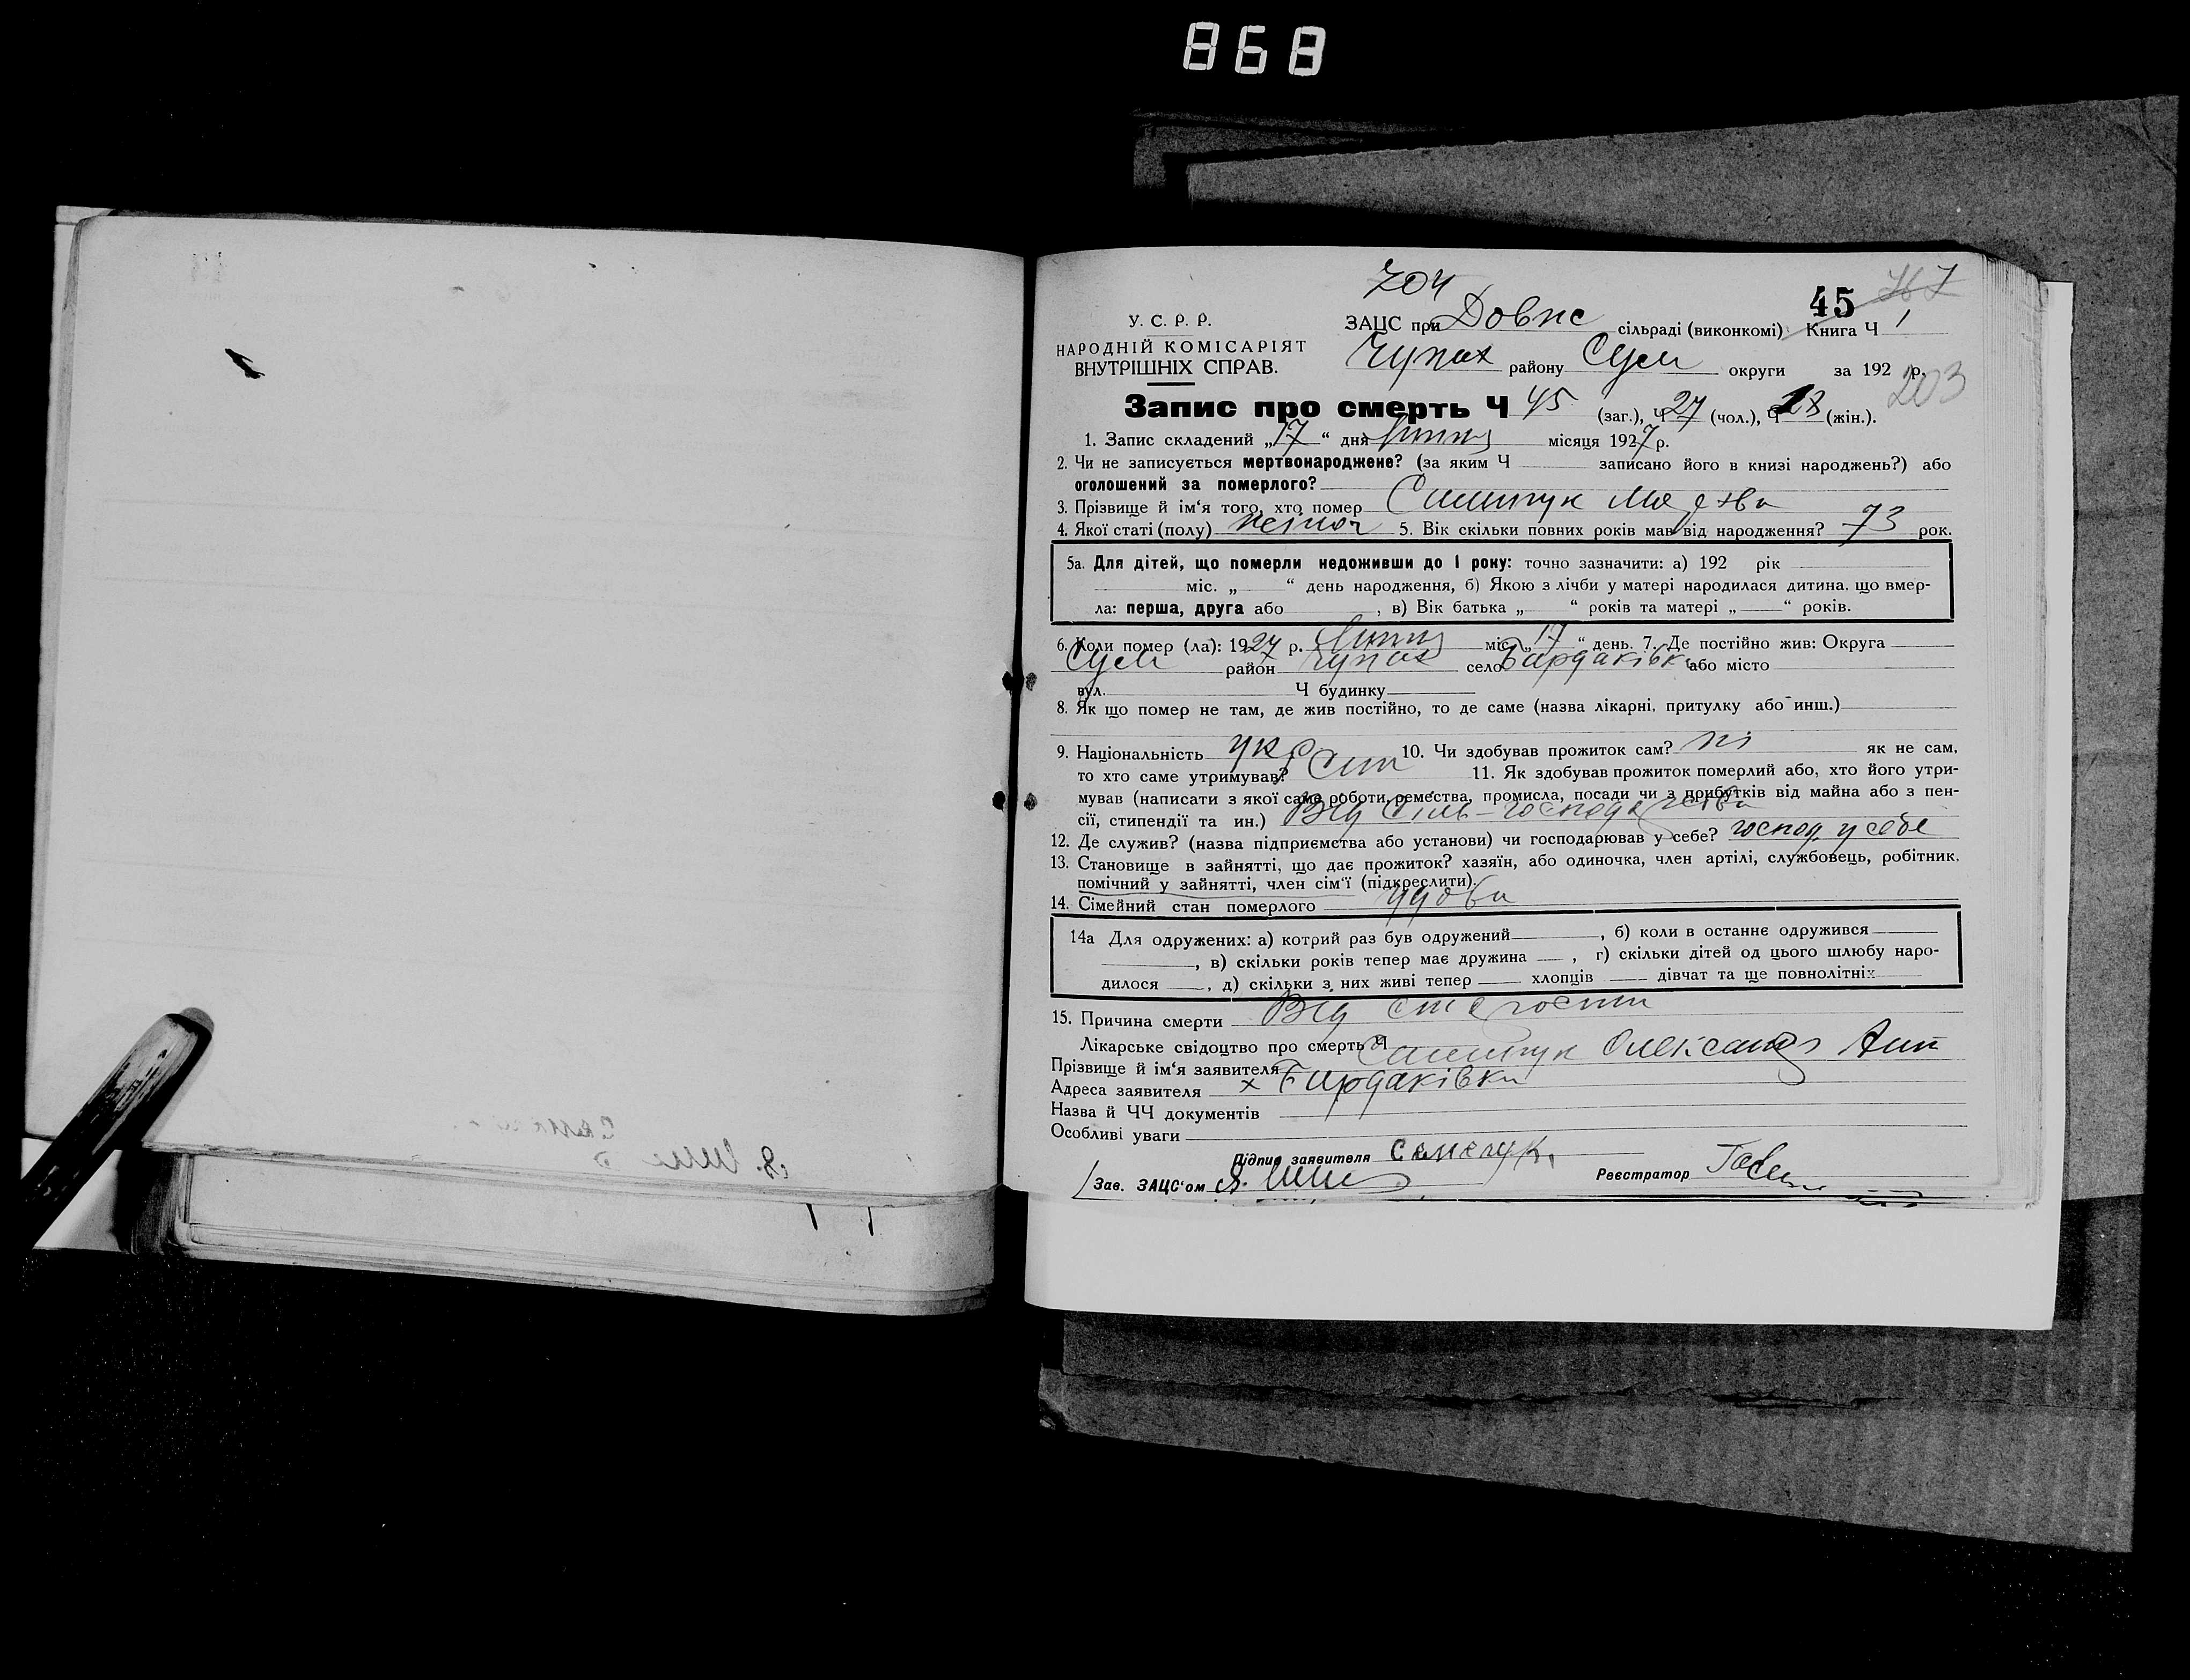 868
704
45
У. С. Р. Р.
ЗАЦС при Довпс сільраді (виконкомі) Книга Ч 1
НАРОДНІЙ КОМІСАРІЯТ
ВНУТРІШНІХ СПРАВ.
Чупах району Сум округи за 192 р.
203
Запис про смерть Ч 45 (заг.), Ч 27 (чол.), Ч 18 (жін.).
1. Запис складений „17“ дня липня місяця 1927 р.
2. Чи не записується мертвонароджене? (за яким Ч записано його в книзі народжень?) або
оголошений за померлого?
3. Прізвище й ім'я того, хто помер
4. Якої статі (полу) жіноч 5. Вік скільки повних років мав від народження? 73 рок.
5а. Для дітей, що померли недоживши до 1 року: точно зазначити: а) 192 рік
міс. „ “ день народження, б) Якою з лічби у матері народилася дитина, що вмер-
ла: перша, друга або , в) Вік батька „ “ років та матері „ “ років.
6. Коли помер (ла): 1927 р. липня міс. „17“ день. 7. Де постійно жив: Округа
Сум район Чупах село Бирдаківка або місто
вул. Ч будинку
8. Як що помер не там, де жив постійно, то де саме (назва лікарні, притулку або инш.)
9. Національність укр 10. Чи здобував прожиток сам? ні як не сам,
то хто саме утримував? Син 11. Як здобував прожиток померлий або, хто його утри-
мував (написати з якої саме роботи, ремества, промисла, посади чи з прибутків від майна або з пен-
сії, стипендії та ин.) Від сіль-господарства
12. Де служив? (назва підприємства або установи) чи господарював у себе? господ у себе
13. Становище в зайнятті, що дає прожиток? хазяїн, або одиночка, член артілі, службовець, робітник,
помічний у зайнятті, член сім'ї (підкреслити).
14. Сімейний стан померлого удова
14а Для одружених: а) котрий раз був одружений , б) коли в останнє одружився
, в) скільки років тепер має дружина , г) скільки дітей од цього шлюбу наро-
дилося , д) скільки з них живі тепер хлопців дівчат та ще повнолітніх
15. Причина смерти Від старости
Лікарське свідоцтво про смерть Ч
Прізвище й ім'я заявителя Олександр Ант
Адреса заявителя х Бирдаківка
Назва й ЧЧ документів
Особливі уваги
Підпис заявителя
Зав. ЗАЦС'ом Реєстратор